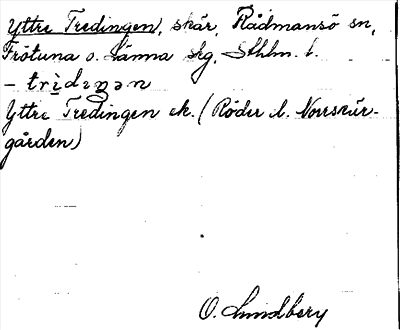 Yttre Tredingen, skär, Rådmansö sn,
Frötuna o. Länna skg, Sthlm. l.
– trìdıŋən
Yttre Tredingen ek. (Röder l. Norrskär-
gården)
O. Lundberg